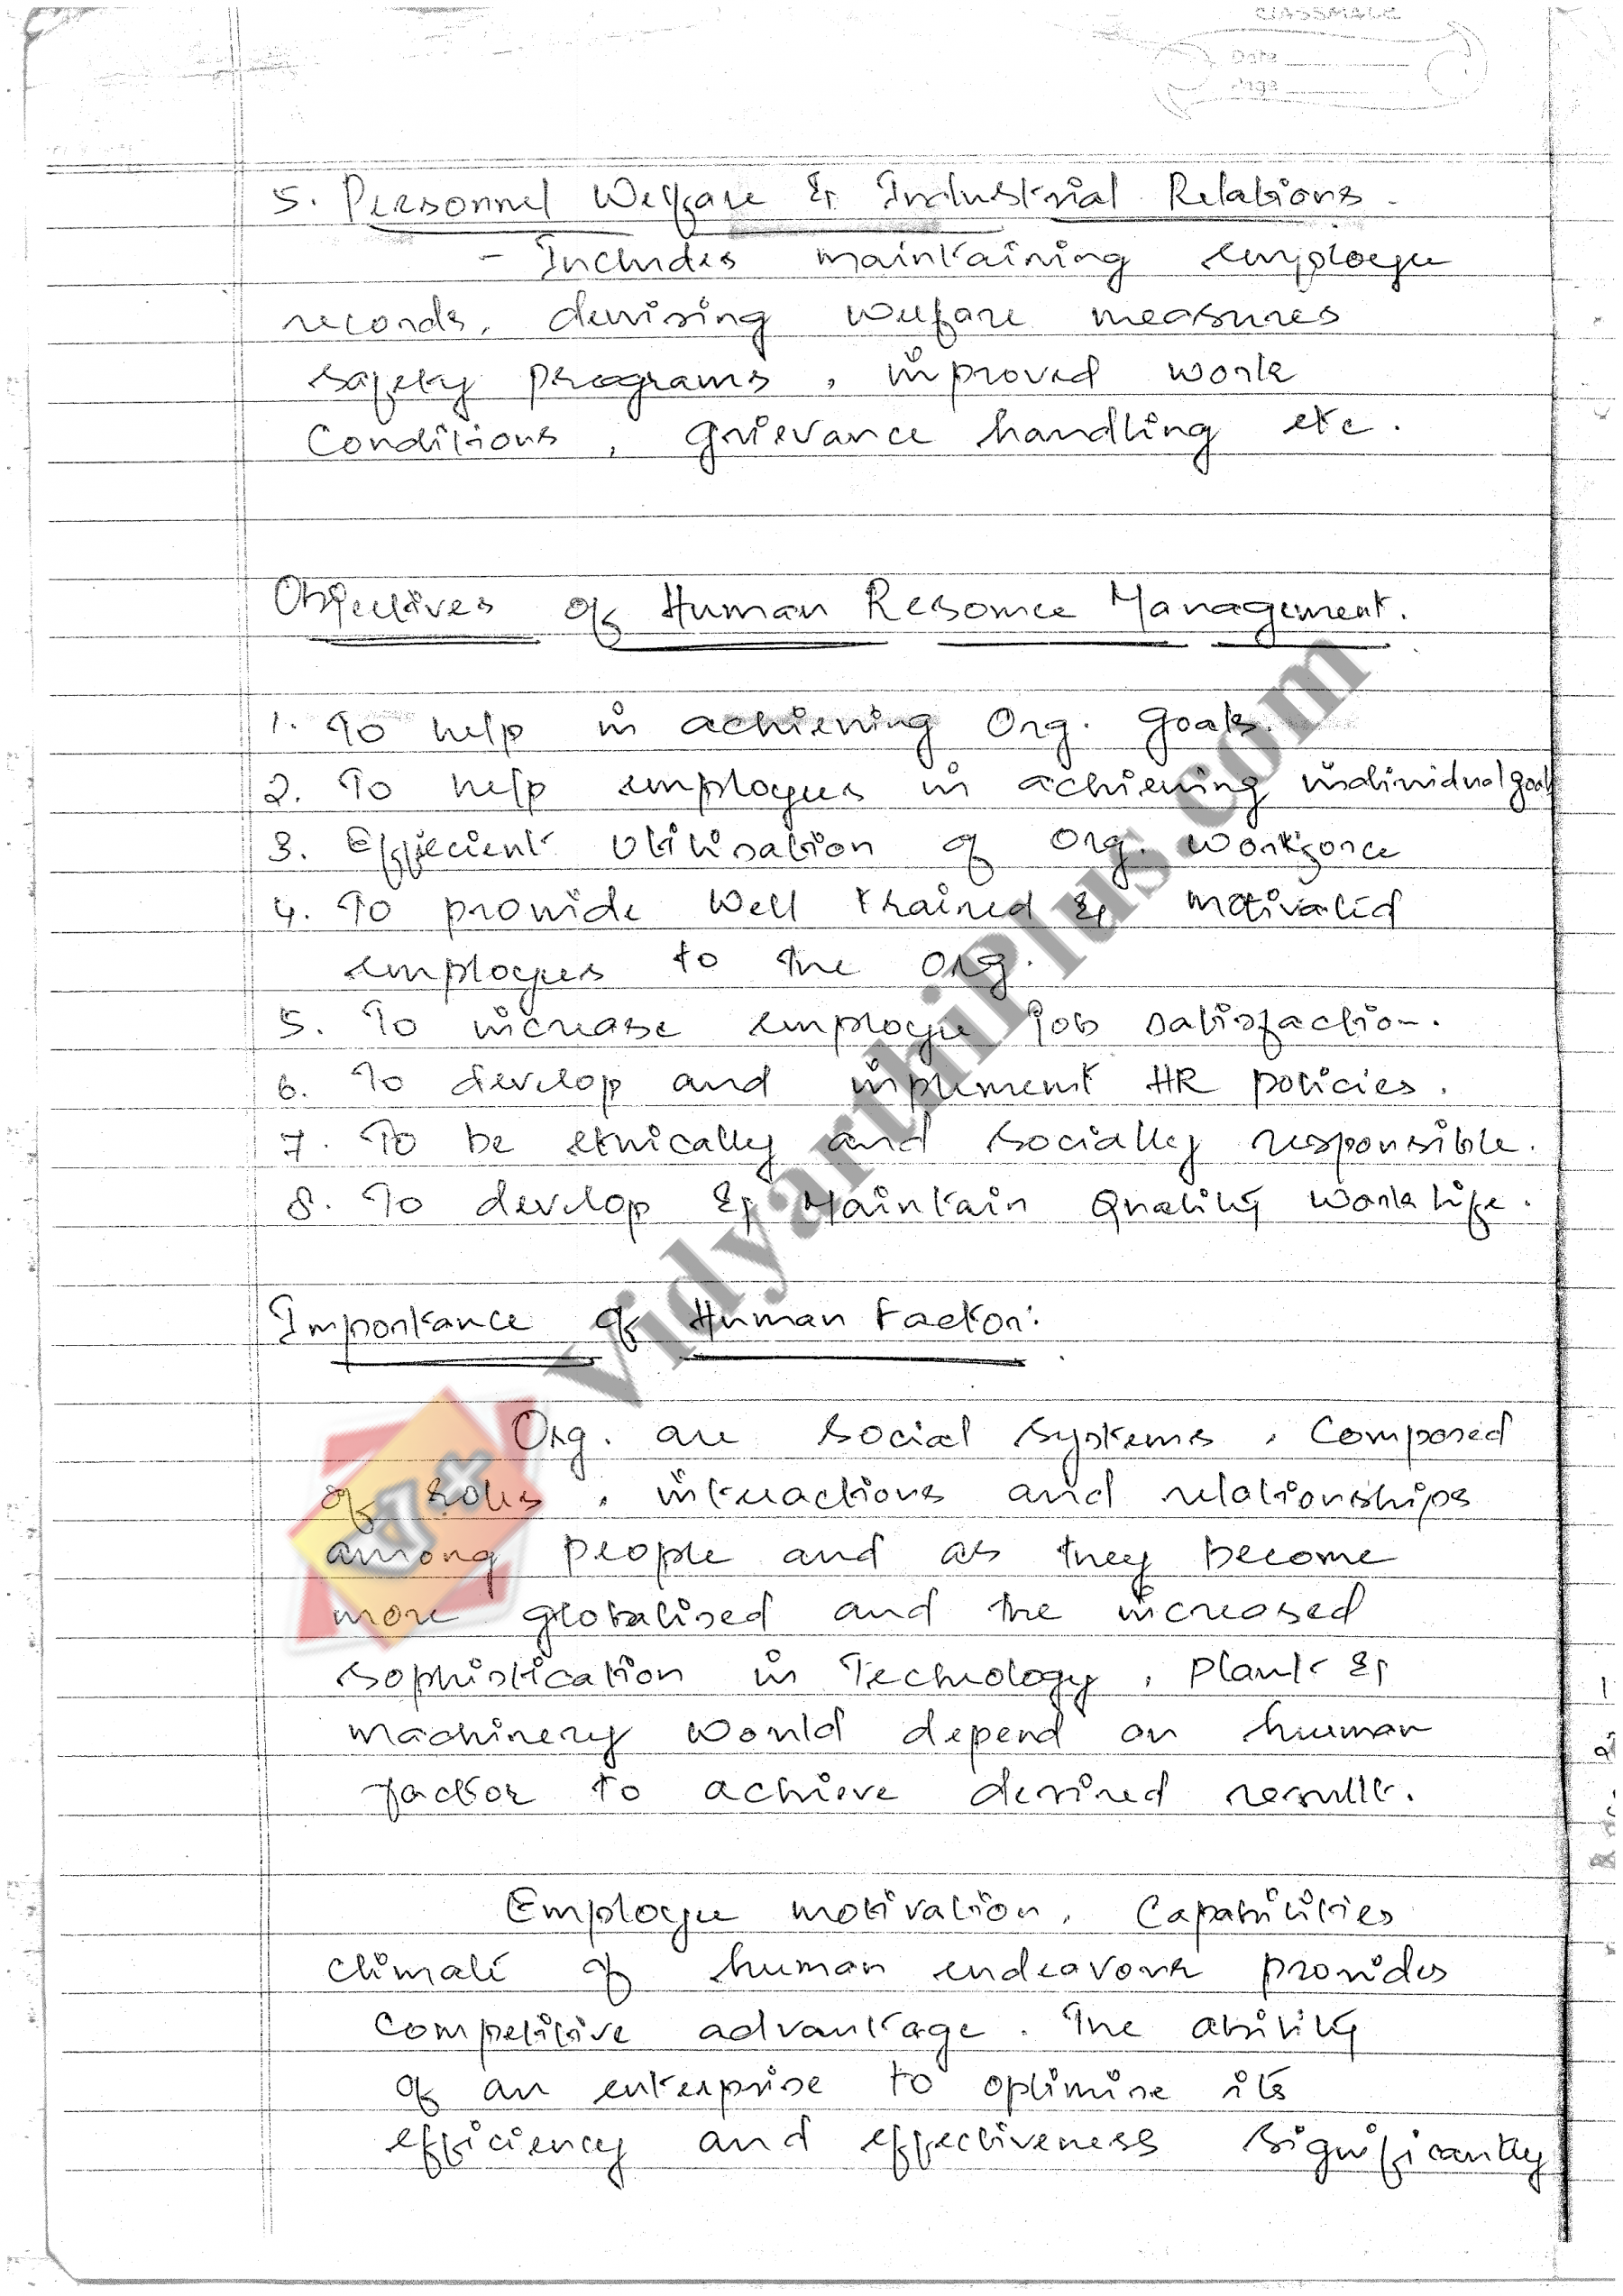 classmate
Date
Page
5. Personnel Welfare & Industrial Relations.
- Includes maintaining employee
records, devising welfare measures
safety programs, improved work
Conditions, grievance handling etc.
Objectives of Human Resource Management.
1. To help in achieving Org. goals.
2. To help employees in achieving individual goals
3. Effecient Utilisation of Org. workforce
4. To provide well trained & motivated
employees to the Org.
5. To increase employee job satisfaction.
6. To develop and implement HR policies.
7. To be ethically and socially responsible.
8. To develop & Maintain Quality work life.
Importance of Human Factor:
Org. are social systems, Composed
of roles, interactions and relationships
among people and as they become
more globalised and the increased
sophistication in Technology, plant &
machinery would depend on human
factor to achieve desired result.
Employee motivation, Capabilities
climate of human endeavour provides
Competitive advantage. The ability
of an enterprise to optimise its
efficiency and effectiveness significantly
VidyarthiPlus.com
V+